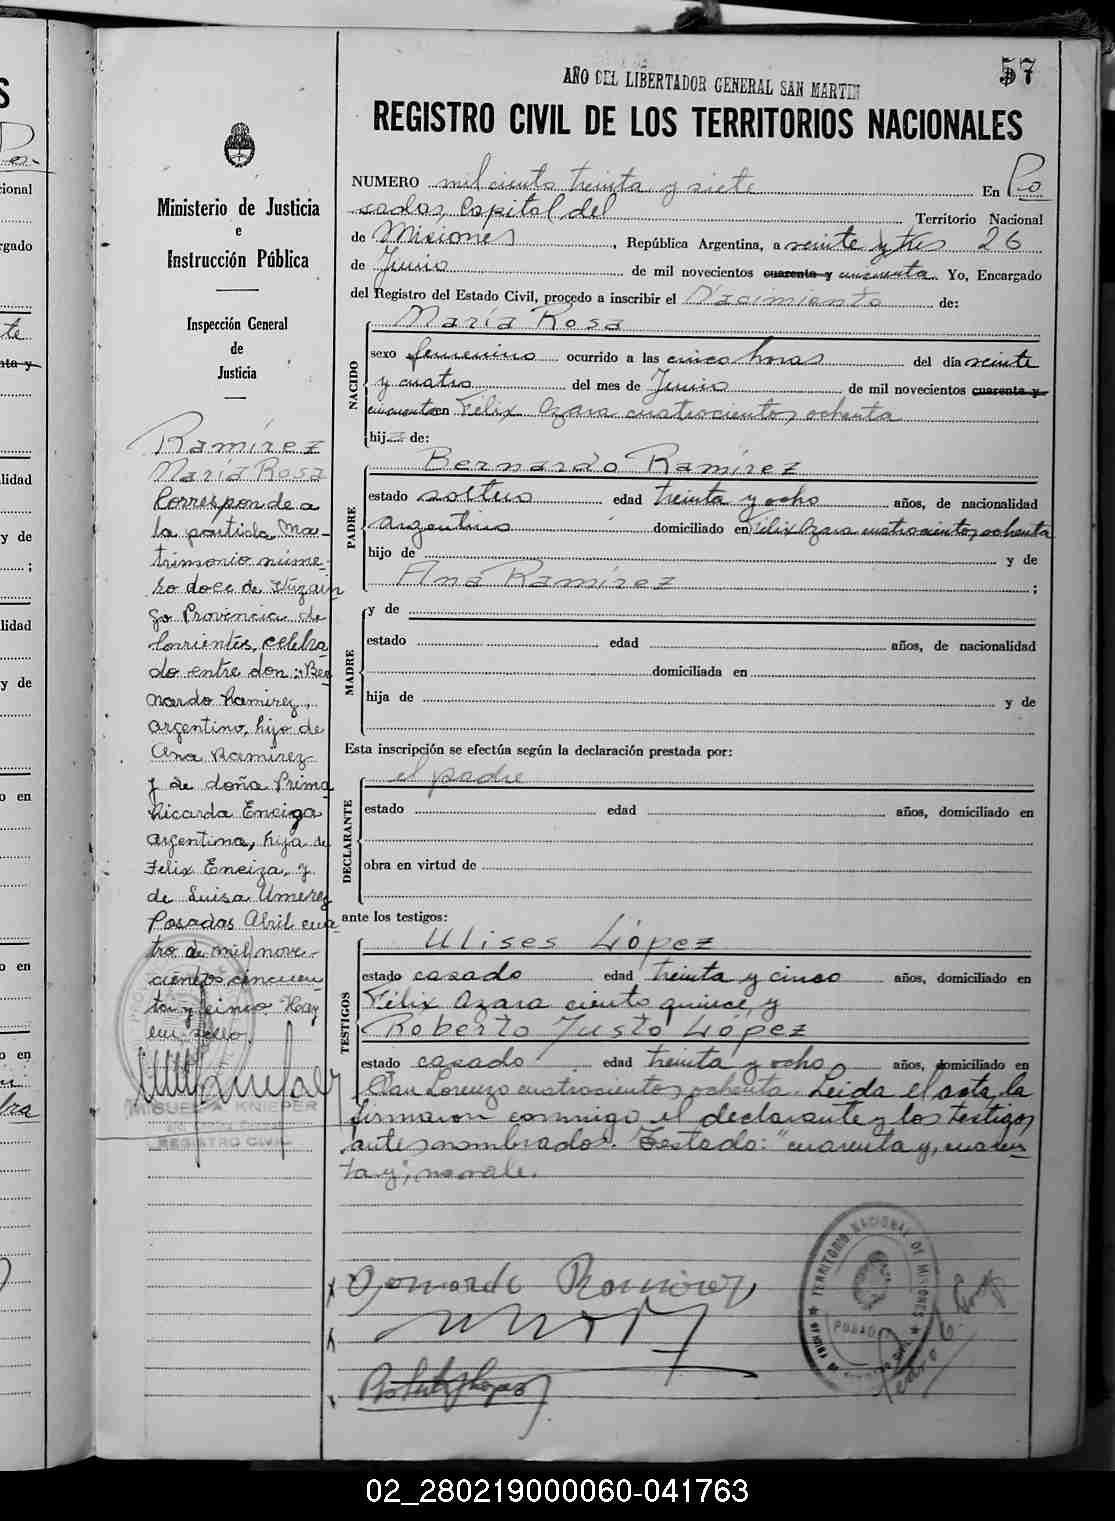 57
AÑO DEL LIBERTADOR GENERAL SAN MARTIN
REGISTRO CIVIL DE LOS TERRITORIOS NACIONALES
Ministerio de Justicia
e
Instrucción Pública
Inspección General
de
Justicia
Ramírez
María Rosa
Corresponde a
la partida Ma-
trimonio núme-
ro doce de Ituzain
go Provincia de
Corrientes, celebra
do entre don: Ber
nardo Ramirez,
argentino, hijo de
Ana Ramirez
y de doña Prima
Ricarda Eneiza
argentina, hija de
Felix Eneiza, y
de Luisa Umerez
Posadas Abril cua
tro de mil nove-
cientos cincuen
ta y cinco. Hay
un sello.
MIGUEL A. KNIEPER
REGISTRO CIVIL
NUMERO mil ciento treinta y siete En Po
sadas, Capital del Territorio Nacional
de Misiones, República Argentina, a veinte y tres 26
de Junio de mil novecientos cuarenta y cincuenta Yo, Encargado
del Registro del Estado Civil, procedo a inscribir el Nacimiento de:
NACIDO
María Rosa
sexo femenino ocurrido a las cinco horas del día veinte
y cuatro del mes de Junio de mil novecientos cuarenta y
cincuenta en Félix Azara cuatrocientos ochenta
hija de:
PADRE
Bernardo Ramírez
estado soltero edad treinta y ocho años, de nacionalidad
argentino domiciliado en Félix Azara cuatrocientos ochenta
hijo de y de
Ana Ramírez ;
MADRE
y de
estado edad años, de nacionalidad
domiciliada en
hija de y de
Esta inscripción se efectúa según la declaración prestada por:
DECLARANTE
el padre
estado edad años, domiciliado en
obra en virtud de
ante los testigos:
TESTIGOS
Ulises López
estado casado edad treinta y cinco años, domiciliado en
Félix Azara ciento quince, y
Roberto Justo López
estado casado edad treinta y ocho años, domiciliado en
San Lorenzo cuatrocientos ochenta. Leida el acta, la
firmaron conmigo el declarante y los testigos
antes nombrados. Testado: "cuarenta y, cuaren-
ta y", no vale.
Bernardo Ramirez
TERRITORIO NACIONAL DE MISIONES
02_280219000060-041763